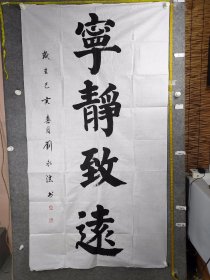 寧靜致遠
歲在乙亥春月劉永淥书